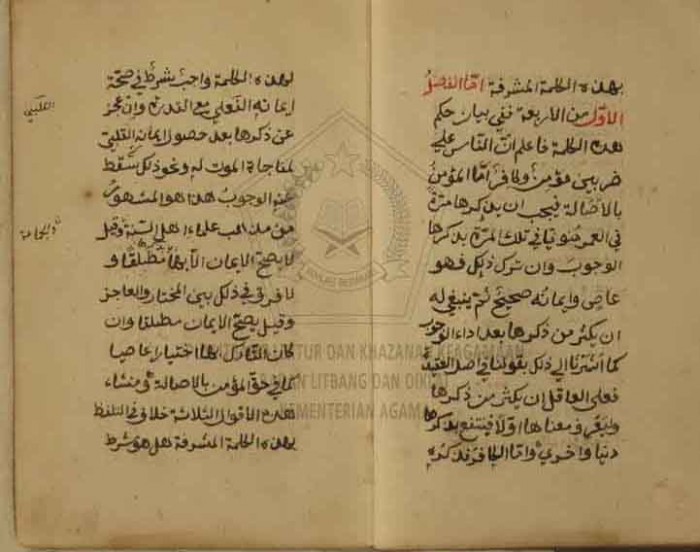 بهذه الكلمة المشرفة اما الفصل
الاول من الاربعة ففي بيان حكم
هذه الكلمة فاعلم ان الناس علي
ضربين مؤمن وكافر اما المؤمن
بالاصالة فيجب ان يذكرها مرة
في العمر ينوي في تلك المرة بذكرها
الوجوب وان ترك ذلك فهو
عاص وايمانه صحيح ثم ينبغي له
ان يكثر من ذكرها بعد اداء الوجوب
كما اشرنا الي ذلك بقولنا في اصل العقيدة
فعلي العاقل ان يكثر من ذكرها
وليعرف معناها اولا فينتفع بذكرها
دنيا واخري واما الكافر فذكره
لهذه الكلمة واجب شرط في صحة
ايمانه القلبي مع القدرة وان عجز
عن ذكرها بعد حصول ايمانه القلبي
لمفاجاة الموت له ونحو ذلك سقط
عنه الوجوب هذا هو المشهور
من مذهب علماء اهل السنة وقيل
لا يصح الايمان الا بها مطلقا و
لا فرق في ذلك بين المختار والعاجز
وقيل يصح الايمان مطلقا وان
كان التارك لها اختيارا عاصيا
كما في حق المؤمن بالاصالة ومنشاء
هذه الاقوال الثلاثة خلاف في التلفظ
بهذه الكلمة المشرفة هل هو شرط
القلبي
والجماعة
LITBANG DAN DIKLAT
KEMENTERIAN AGAMA